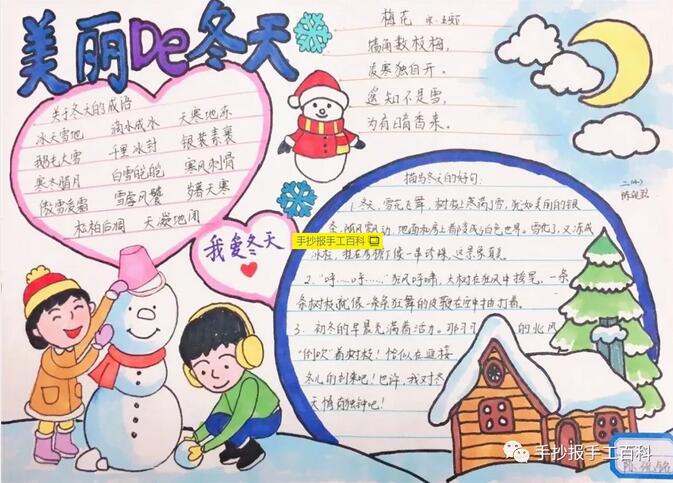 美丽De冬天
关于冬天的成语
冰天雪地 滴水成冰 天寒地冻
鹅毛大雪 千里冰封 银装素裹
寒冬腊月 白雪皑皑 寒风刺骨
傲雪凌霜 岁暮天寒
松柏后凋 天凝地闭
我爱冬天
梅花 宋·王安
墙角数枝梅，
凌寒独自开。
遥知不是雪，
为有暗香来。
描写冬天的好句：
1. 冬天，雪花飞舞，树枝上落满了雪，犹如美丽的银
条，随风飘动，地面和房上都变成白色世界。雪化了，又冻成
冰柱，挂在房檐下像一串珍珠，这景象真美
2. “呼……呼……”狂风呼啸，大树在狂风中摇晃，一条
条树枝就像一条条狂舞的皮鞭在空中抽打着。
3. 初冬的早晨充满着活力。那 的北风
“倒吹”着树枝！恰似在迎接
冬儿的到来吧！也许，我对冬
天情有独钟吧！
手抄报手工百科
手抄报手工百科